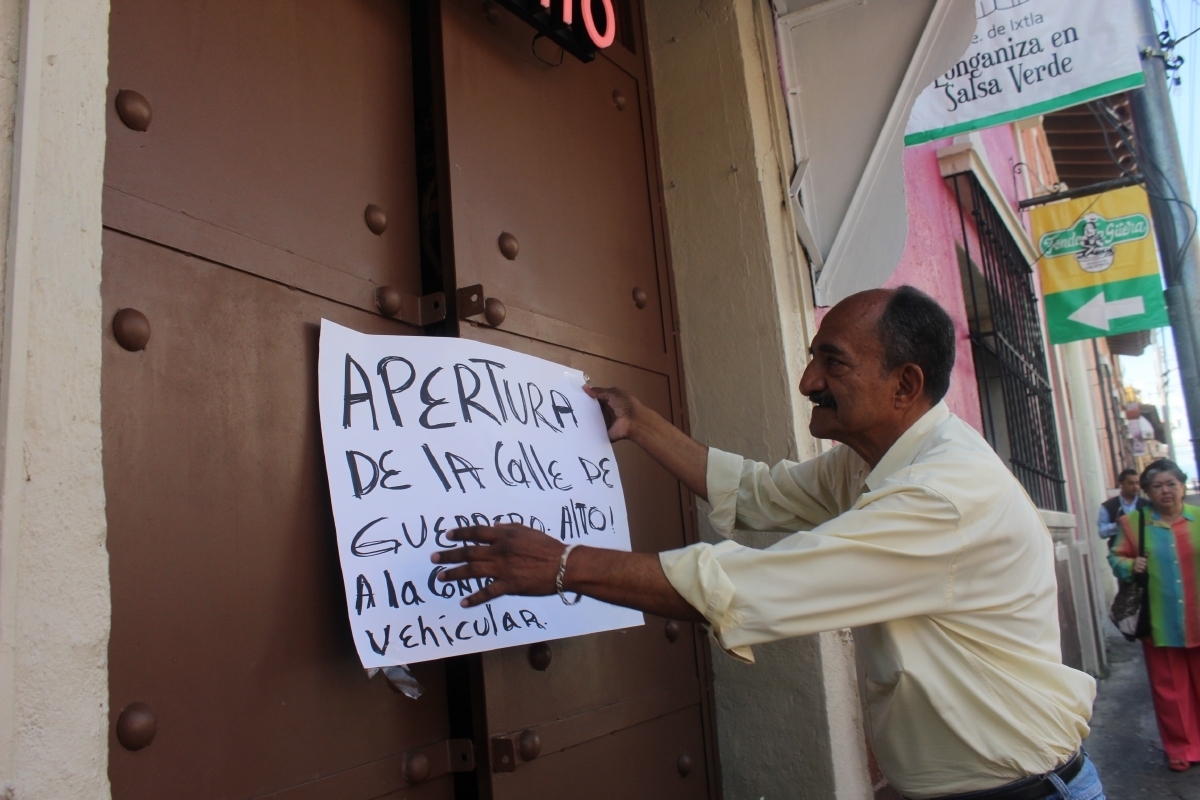 APERTURA
DE lA Calle DE
GUERRERO. AlTO!
A la
Vehicular.
e. de Ixtla
Longaniza en
Salsa Verde
Güera